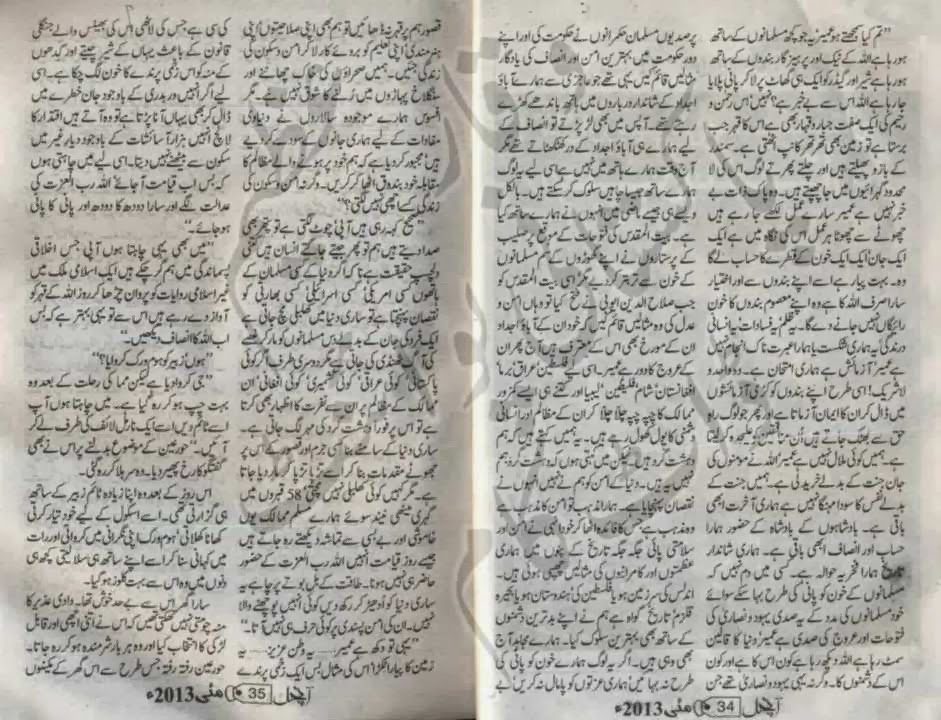 ”تم کیا سمجھتے ہو عمیر یہ جو کچھ مسلمانوں کے ساتھ
ہو رہا ہے اللہ کے نیک اور پرہیز گار بندوں کے ساتھ
ہو رہا ہے شیر اور گیدڑ کو ایک ہی گھاٹ پر لا کر پانی پلایا
جا رہا ہے اللہ اس سے بے خبر ہے؟ نہیں اس رحمن و
رحیم کی ایک صفت جبار و قہار بھی ہے اس کا قہر جب
برستا ہے تو زمین بھی تھر تھر کانپ اٹھتی ہے۔ سمندر
کے بازو پھیلتے ہیں اور چلتے پھرتے لوگ اس کی لا
محدود گہرائیوں میں جا چھپتے ہیں۔ وہ پاک ذات بے
خبر نہیں ہے عمیر سارے عمل لکھے جا رہے ہیں
چھوٹے سے چھوٹا ہر عمل اس کی نگاہ میں ہے ایک
ایک جان ایک ایک خون کے قطرے کا حساب لے گا
وہ۔ بہت پیار ہے اسے اپنے بندوں سے اور اختیار
سارا صرف اللہ کا ہے وہ اپنے معصوم بندوں کا خون
رائیگاں نہیں جانے دے گا۔ یہ ظلم یہ فسادات یہ انسانی
درندگی یہ ہماری شکست یا ہمارا عبرت ناک انجام نہیں
ہے عمیر آزمائش ہے ہماری امتحان ہے۔ وہ واحد و
لاشریک اسی طرح اپنے بندوں کو کڑی آزمائشوں
میں ڈال کر ان کا ایمان آزماتا ہے اور پھر جو لوگ راہ
حق سے بھٹک جاتے ہیں ان منافقین کو علیحدہ کر لیتا
ہے۔ ہمیں کوئی ملال نہیں ہے عمیر اللہ نے مومنوں کی
جان جنت کے بدلے خرید لی ہے۔ ہمیں جنت کے
بدلے نفس کا سودا مہنگا نہیں ہے ہماری آخرت ابھی
باقی ہے۔ بادشاہوں کے بادشاہ کے حضور ہمارا
حساب اور انصاف ابھی باقی ہے۔ ہماری شاندار
تاریخ ہمارا فخریہ حوالہ ہے۔ کسی میں دم نہیں کہ
مسلمانوں کے خون کو پانی کی طرح بہا سکے سوائے
خود مسلمانوں کی مدد کے یہ صدی یہود و نصاریٰ کی
فتوحات اور عروج کی صدی ہے عمیر دنیا کا قالین
سمٹ رہا ہے اللہ دیکھ رہا ہے کون اس کا ہے اور کون
اس کے دشمنوں کا۔ وگرنہ یہی یہود و نصاریٰ تھے جن
پر صدیوں مسلمان حکمرانوں نے حکومت کی اور اپنے
دور حکومت میں بہترین امن اور انصاف کی یادگار
مثالیں قائم کیں یہی تھے جو عاجزی سے ہمارے آباؤ
اجداد کے شاندار درباروں میں ہاتھ باندھے کھڑے
رہتے تھے۔ آپس میں بھی لڑ پڑتے تو انصاف کے
لیے ہمارے ہی آباؤ اجداد کے در کھٹکھٹاتے تھے مگر
آج وقت ہمارے ہاتھ میں نہیں ہے اسی لیے یہ لوگ
ہمارے ساتھ جیسا چاہیں سلوک کر سکتے ہیں۔ بالکل
ویسے ہی جیسے ماضی میں انہوں نے ہمارے ساتھ کیا
ہے۔ بیت المقدس کی فتوحات کے موقع پر صلیب
کے پرستاروں نے اپنے گھوڑوں کے سم مسلمانوں
کے خون سے تر بتر کر دیے مگر اسی بیت المقدس کو
جب صلاح الدین ایوبی نے فتح کیا تو وہاں امن و
عدل کی وہ مثالیں قائم کیں کہ خود ان کے آباؤ اجداد
ان کے مورخ بھی اس کے معترف ہیں آج پھر ان
کے عروج کا دور ہے عمیر۔ اسی لیے فلسطین عراق برما
افغانستان شام فلپائن لیبیا اور کتنے ہی ایسے کمزور
ممالک کا چپہ چپہ چلا چلا کر ان کے مظالم اور انسانی
دشمنی کا پول کھول رہے ہیں۔ یہ ہمیں کہتے ہیں کہ ہم
دہشت گرد ہیں۔ لیکن میں کہتی ہوں کہ دہشت گرد ہم
نہیں یہ ہیں۔ دنیا کے امن کو ہم نے نہیں انہوں نے
نقصان پہنچایا ہے۔ ہمارا مذہب تو امن کا مذہب ہے
وہ مذہب ہے جس کا فائدہ اٹھا کر خود انہی نے امن اور
سلامتی پائی جگہ جگہ تاریخ کے پنوں میں ہماری
عظمتوں اور کامرانوں کی مثالیں چھپی ہوئی ہیں۔
اندلس کی سرزمین ہو یا فلسطین کی ہندوستان ہو یا بحیرہ
قلزم تاریخ گواہ ہے ہم نے اپنے بدترین دشمنوں
کے ساتھ بھی بہترین سلوک کیا۔ ہمارے مجاہد آج
بھی وہی ہیں۔ اگر یہ لوگ ہمارے خون کو پانی کی
طرح نہ بہائیں ہماری عزتوں کو پامال نہ کریں بے
آنچل 34 مئی 2013ء
قصور ہم پر قہر نہ ڈھائیں تو ہم بھی اپنی صلاحیتوں اپنی
ہنرمندی اپنی تعلیم کو بروئے کار لا کر امن و سکون کی
زندگی جئیں۔ ہمیں صحراؤں کی خاک چھاننے اور
سنگلاخ پہاڑوں میں رُلنے کا شوق نہیں ہے۔ مگر
افسوس ہمارے موجودہ سالاروں نے دنیاوی
مفادات کے لیے ہماری جانوں کے سودے کر دیے
ہیں مجبور کر دیا ہے کہ ہم خود پر ہونے والے مظالم کا
مقابلہ خود بندوق اٹھا کر کریں۔ وگرنہ امن و سکون کی
زندگی کسے اچھی نہیں لگتی؟“
”صحیح کہہ رہی ہیں آپی چوٹ لگتی ہے تو پتھر بھی
صدا دیتے ہیں ہم تو پھر جیتے جاگتے انسان ہیں کتنی
دلچسپ حقیقت ہے نا کہ اگر دنیا کے کسی مسلمان کے
ہاتھوں کسی امریکی کسی اسرائیلی کسی بھارتی کو
نقصان پہنچتا ہے تو ساری دنیا میں کھلبلی مچ جاتی ہے
ایک فرد کی جان کے بدلے دس مسلمانوں کو مار کر غصے
کی آگ ٹھنڈی کی جاتی ہے مگر دوسری طرف اگر کوئی
پاکستانی کوئی عراقی کوئی کشمیری کوئی افغانی ان
ممالک کے مظالم پر ان سے نفرت کا اظہار بھی کرتا
ہے تو اس پر فوراً دہشت گردی کی مہر لگ جاتی ہے۔
ساری دنیا کے سامنے بنا کسی جرم اور قصور کے اس پر
جھوٹے مقدمات بنا کر اسے تڑپا تڑپا کر مار دیا جاتا
ہے۔ مگر کہیں کوئی کھلبلی نہیں مچتی 58 قبروں میں
گہری میٹھی نیند سوئے ہمارے مسلم ممالک یوں
خاموشی اور بے بسی سے تماشہ دیکھتے رہ جاتے ہیں
جیسے روز قیامت انہیں اللہ رب العزت کے حضور
حاضر ہی نہیں ہونا۔ طاقت کے بل بوتے پر چاہے یہ
ساری دنیا کو ادھیڑ کر رکھ دیں کوئی انہیں پوچھنے والا
نہیں۔ ان کی امن پسندی پر کوئی حرف ہی نہیں آتا۔“
”یہی تو دکھ ہے عمیر..... یہ وطن عزیز..... یہ
زمین کا پیارا ٹکڑا اس کی مثال بس ایک زخمی پرندے
کی سی ہے جس کی لاٹھی اس کی بھینس والے جنگلی
قانون کے باعث یہاں کے شیر چیتے اور گیدڑوں
کے منہ کو اس زخمی پرندے کا خون لگ چکا ہے۔ اسی
لیے اگر انہیں در بدری کے باوجود جان خطرے میں
ڈال کر بھی یہاں آنا پڑتا ہے تو وہ آتے ہیں اقتدار کا
لالچ انہیں ہزار آسائشات کے باوجود دیار غیر میں
سکون سے بیٹھنے نہیں دیتا۔ اسی لیے میں چاہتی ہوں
کہ بس اب قیامت آ جائے اللہ رب العزت کی
عدالت لگے اور سارا دودھ کا دودھ اور پانی کا پانی
ہو جائے۔“
”میں بھی یہی چاہتا ہوں آپی جس اخلاقی
پسماندگی میں ہم گر چکے ہیں ایک اسلامی ملک میں
غیر اسلامی روایات کو پروان چڑھا کر روز اللہ کے قہر کو
آواز دے رہے ہیں اس سے تو یہی بہتر ہے کہ بس
اب اللہ کا انصاف دیکھیں۔“
”ہوں زبیر کو ہوم ورک کروا لیا؟“
”جی کروا دیا ہے لیکن مما کی رحلت کے بعد وہ
بہت چپ ہو کر رہ گیا ہے۔ میں چاہتا ہوں آپ
اسے ٹائم دیں اسے ایک نارمل لائف کی طرف لے کر
آئیں۔“ حورعین کے موضوع بدلنے پر اس نے بھی
گفتگو کا رخ پھیر دیا۔ وہ سر ہلا کر رہ گئی۔
اس روز کے بعد وہ اپنا زیادہ ٹائم زبیر کے ساتھ
ہی گزارتی تھی۔ اسے اسکول کے لیے خود تیار کرتی
کھانا کھلاتی ہوم ورک اپنی نگرانی میں کرواتی اور رات
میں کہانی سنا کر اسے اپنے ساتھ ہی سلا لیتی کچھ ہی
دنوں میں وہ اس سے بہت کلوز ہو گیا۔
سارا گھر اس سے بے حد خوش تھا۔ وادی عذیر کا
منہ چومتی نہیں تھکتی تھیں کہ اس نے اتنی اچھی اور قابل
لڑکی کا انتخاب کیا اور وہ ہر بار شرمندہ ہو کر رہ جاتا۔
حورعین رفتہ رفتہ جس طرح سے اس گھر کے مکینوں
آنچل 35 مئی 2013ء